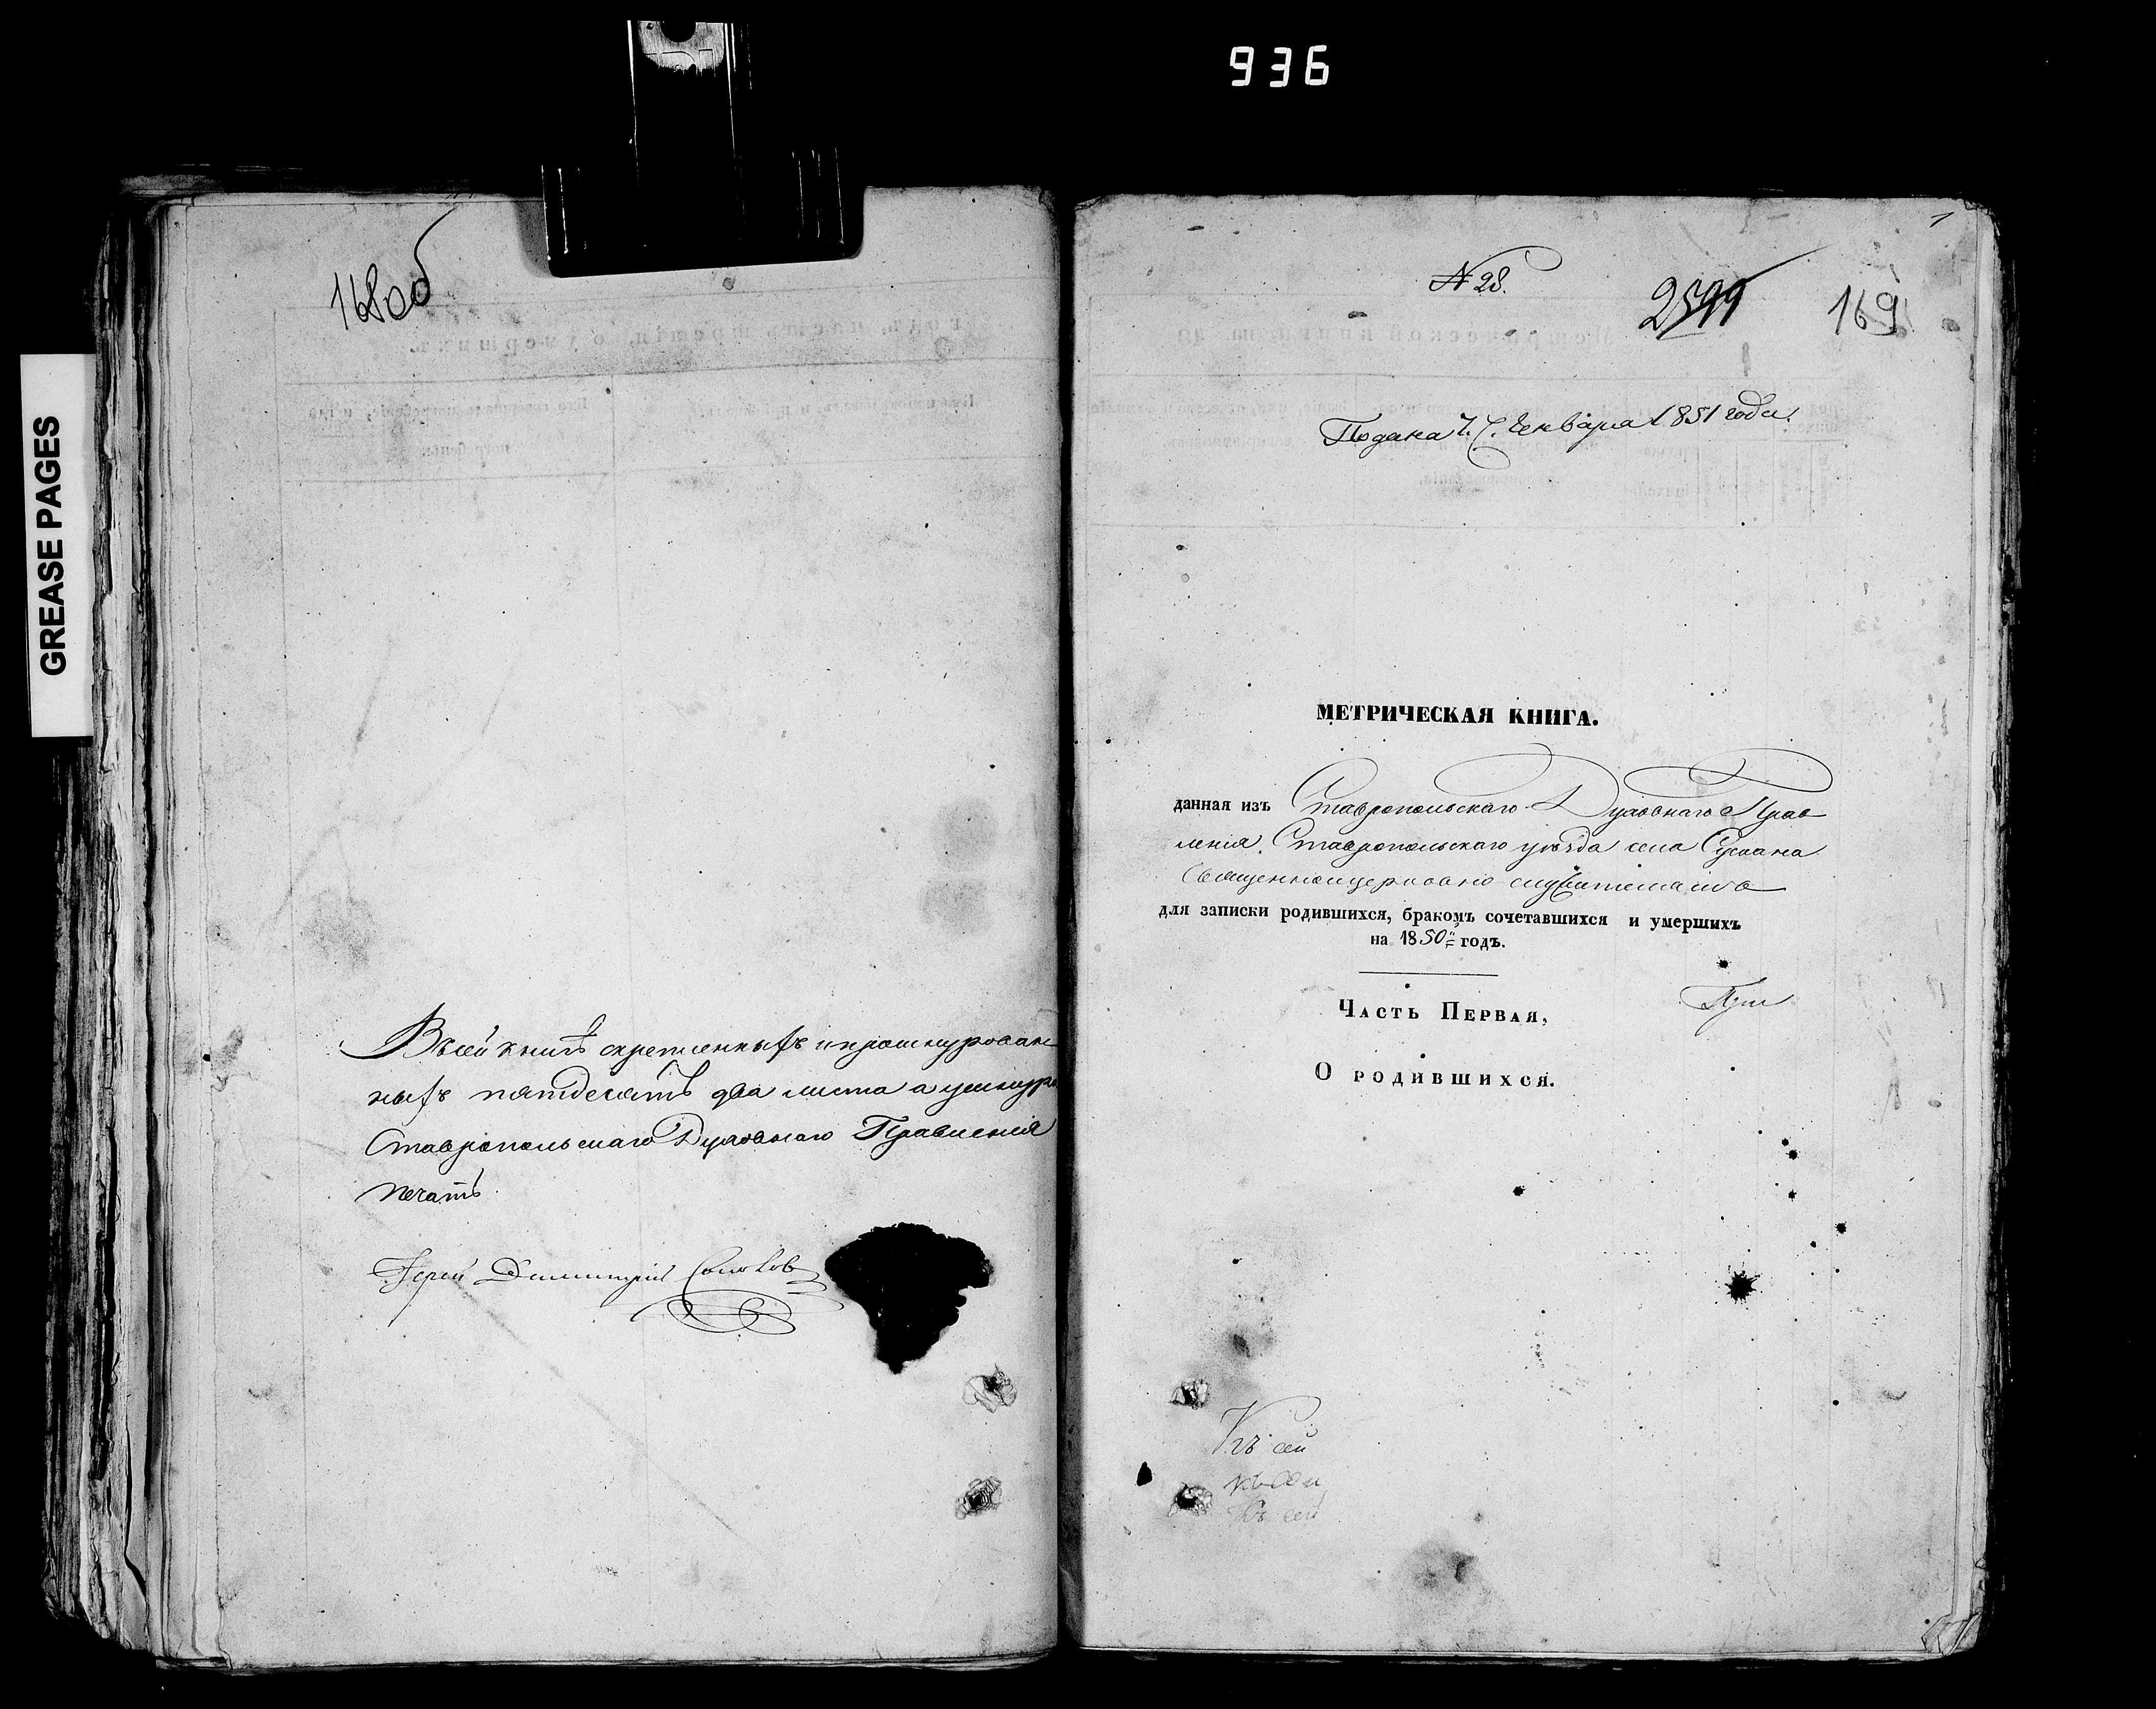 936
GREASE PAGES
168об
Въ сей книгѣ скрепленныхъ и прошнурован
ныхъ пятдесятъ два листа а у шнура
Ставропольскаго Духовнаго Правленія
печать
Іерей Димитрій
1
N 28.
169
Подана Генваря 1851 года.
МЕТРИЧЕСКАЯ КНИГА.
данная изъ Ставропольскаго Духовнаго Прав
ленія. Ставропольскаго уѣзда села Сускана
Священноцерковно-служителямъ
для записки родившихся, бракомъ сочетавшихся и умершихъ
на 1850й годъ.
Часть Первая,
При
О родившихся.
Къ сей
къ сей
Къ сей